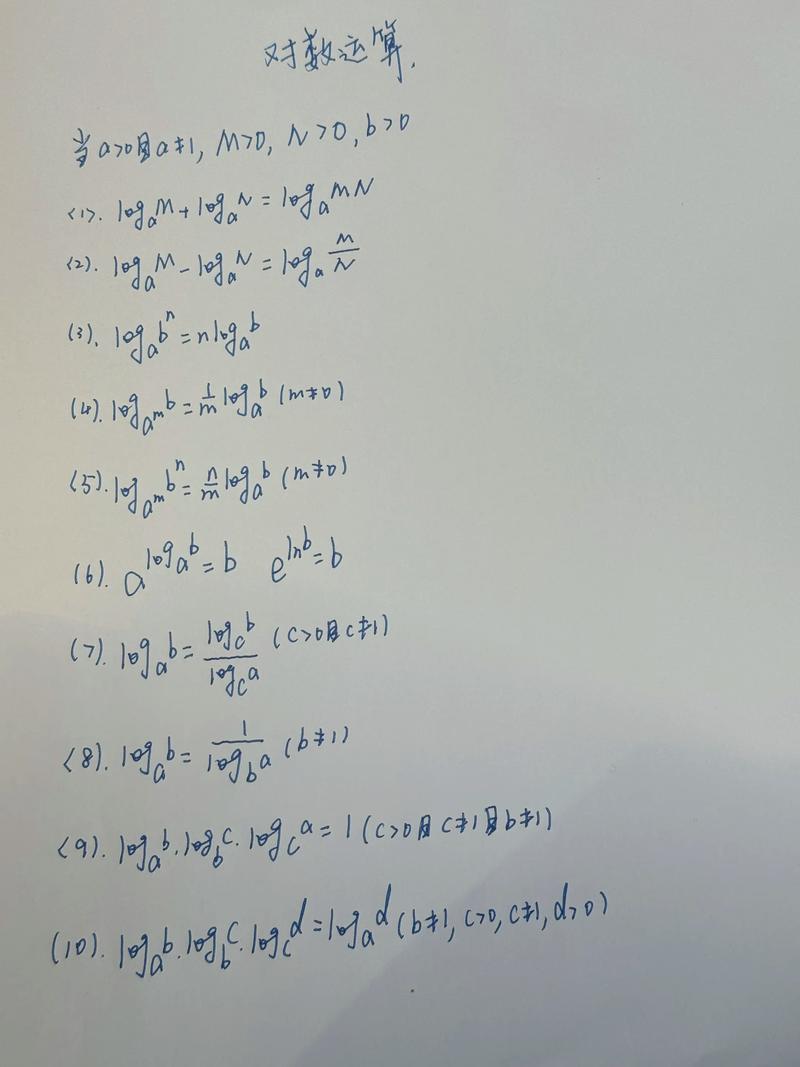 对数运算.
当a>0且a≠1, M>0, N>0, b>0
(1). logₐM + logₐN = logₐMN
(2). logₐM - logₐN = logₐ\frac{M}{N}
(3). logₐbⁿ = n logₐb
(4). log_{a^m}b = \frac{1}{m} logₐb (m≠0)
(5). log_{a^m}bⁿ = \frac{n}{m} logₐb (m≠0)
(6). a^{logₐb} = b e^{lnb} = b
(7). logₐb = \frac{log_c b}{log_c a} (c>0且c≠1)
(8). logₐb = \frac{1}{log_b a} (b≠1)
(9). logₐb · log_b c · log_c a = 1 (c>0且c≠1且b≠1)
(10). logₐb · log_b c · log_c d = logₐd (b≠1, c>0, c≠1, d>0)